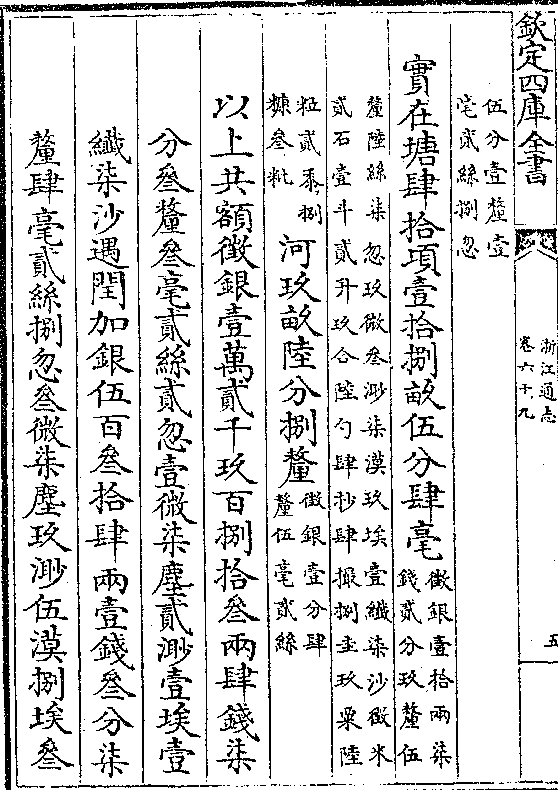 欽定四庫全書
浙江通志
卷六十九
五
伍分壹釐壹
毫貳絲捌忽
實在塘肆拾頃壹拾捌畝伍分肆毫
徵銀壹拾兩柒
錢貳分玖釐伍
釐陸絲柒忽玖微叁渺柒漠玖埃壹纖柒沙徵米
貳石壹斗貳升玖合陸勺肆抄肆撮捌圭玖粟陸
粒貳黍捌
糠叁粃
河玖畝陸分捌釐
徵銀壹分肆
釐伍毫貳絲
以上共額徵銀壹萬貳千玖百捌拾叁兩肆錢柒
分叁釐叁毫貳絲貳忽壹微柒塵貳渺壹埃壹
纖柒沙遇閏加銀伍百叁拾肆兩壹錢叁分柒
釐肆毫貳絲捌忽叁微柒塵玖渺伍漠捌埃叁